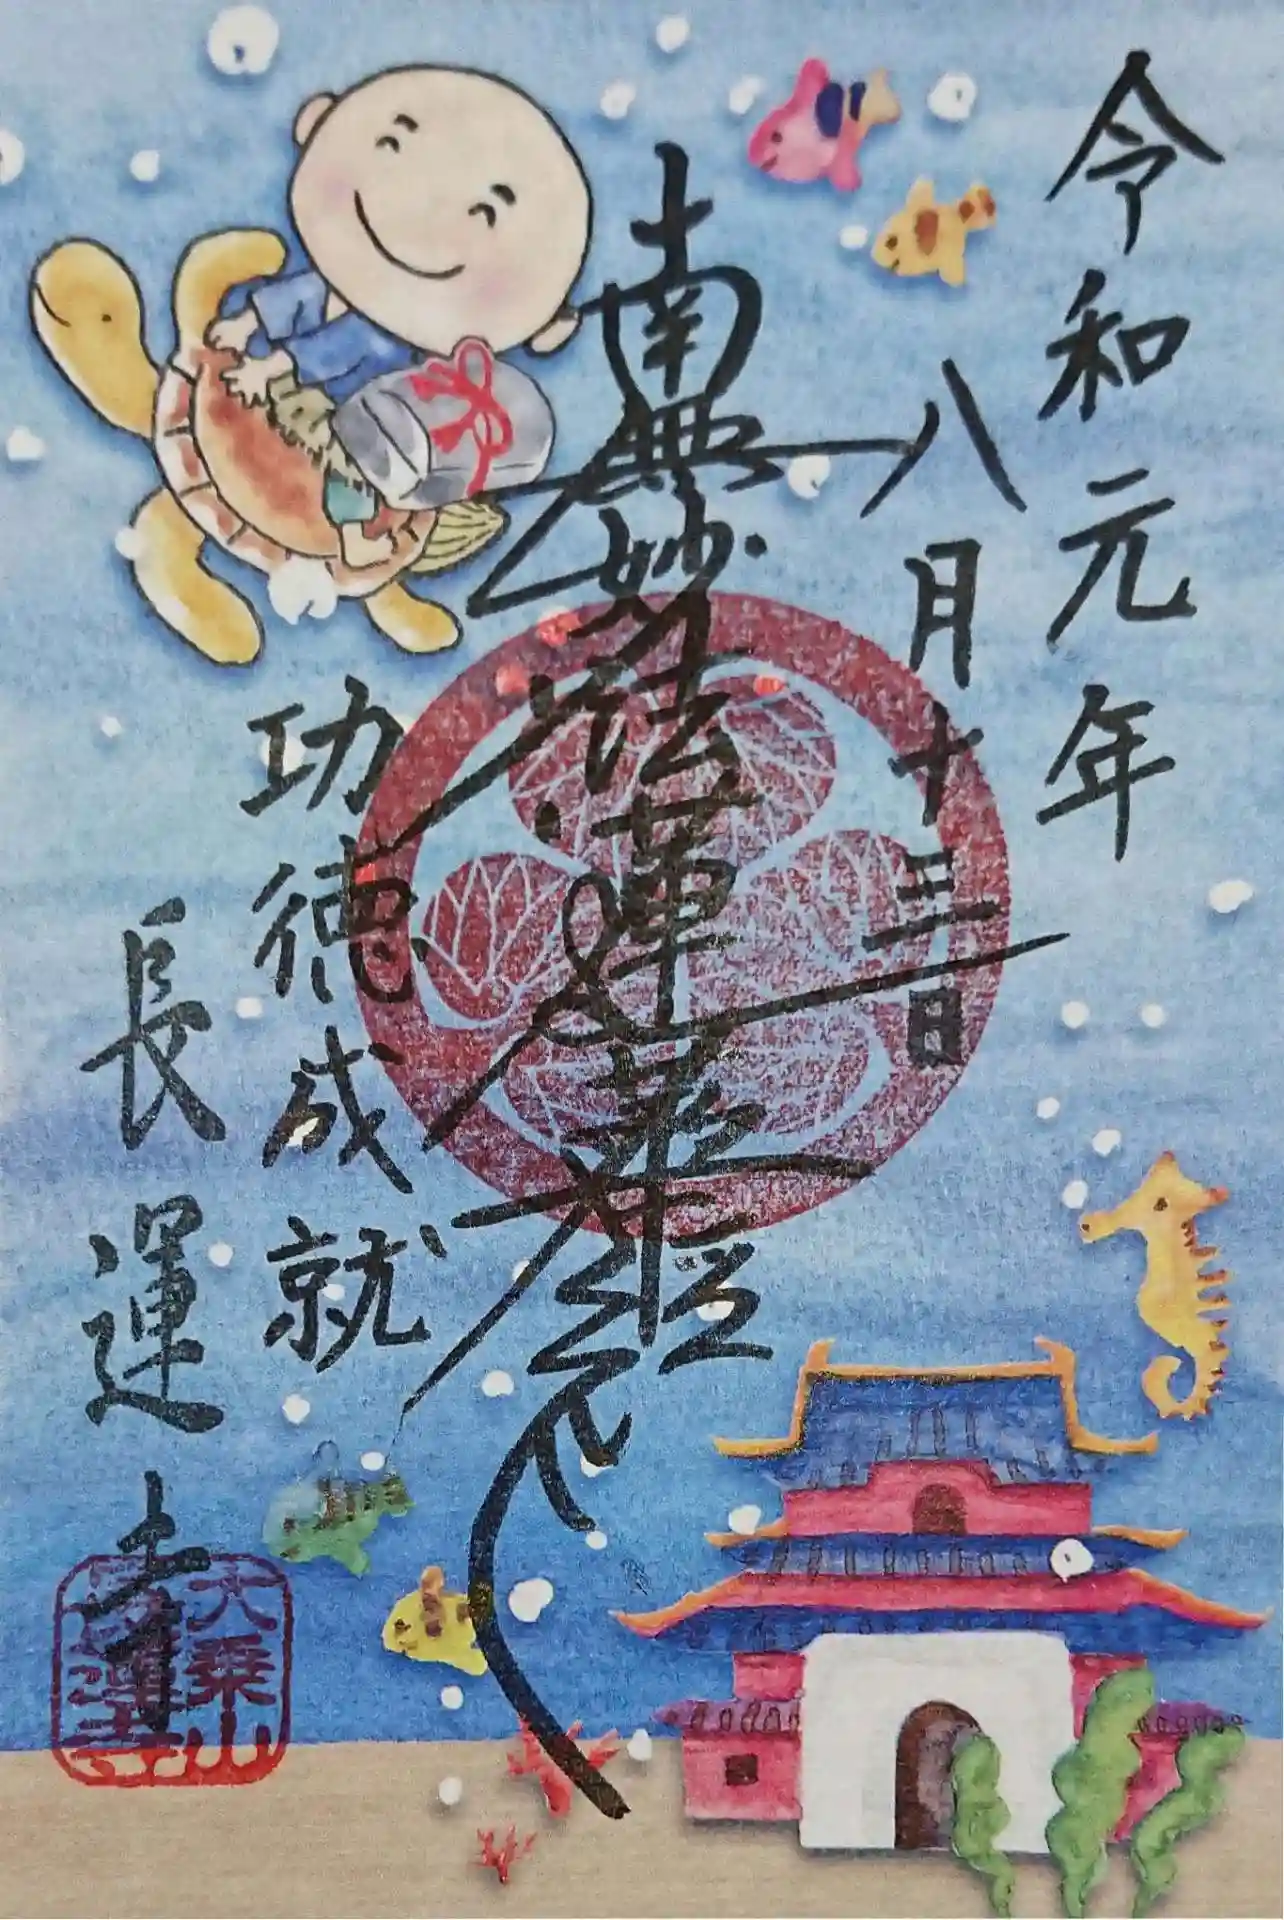 令和元年
八月十三日
南無妙法蓮華經
功徳成就
長運寺
大乗山
長運寺